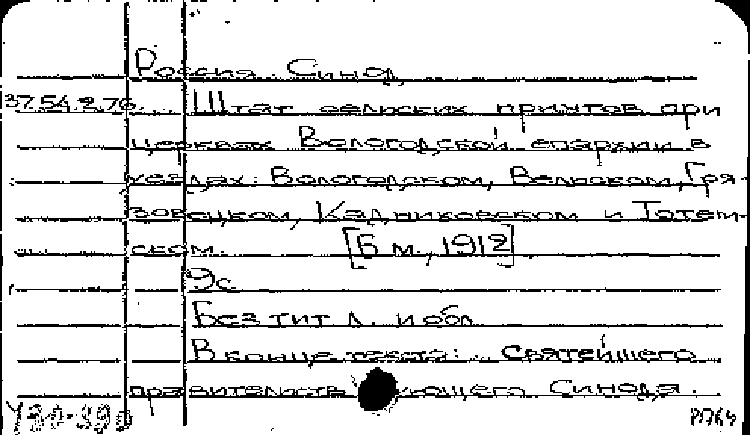 Россия. Синод.
37.54.2.76. Штат сельских причтов при
церквах Вологодской епархии в
уездах: Вологодском, Вельском, Гря-
зовецком, Кадниковском и Тотем-
ском. [Б. м., 1912]
9с.
Без тит. л. и обл.
В конце текста: Святейшего
правительствующего Синода.
У80-390